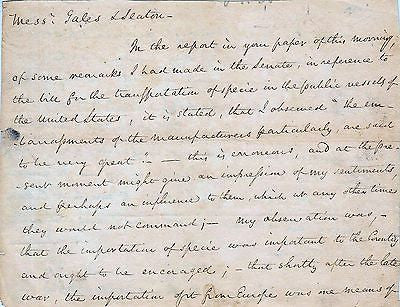 Messrs Gales & Seaton—
In the report in your paper of this morning,
of some remarks I had made in the Senate, in reference to
the bill for the transportation of specie in the public vessels of
the United States, it is stated, that I observed "the em-
barrassments of the manufacturers particularly, are said
to be very great"— — this is erroneous, and at the pre-
sent moment might give an impression of my sentiments,
and perhaps an influence to them, which at any other time
they would not command;— my observation was,—
that the importation of specie was important to the Country,
and ought to be encouraged;— that shortly after the late
war, the importation of it from Europe was one means of